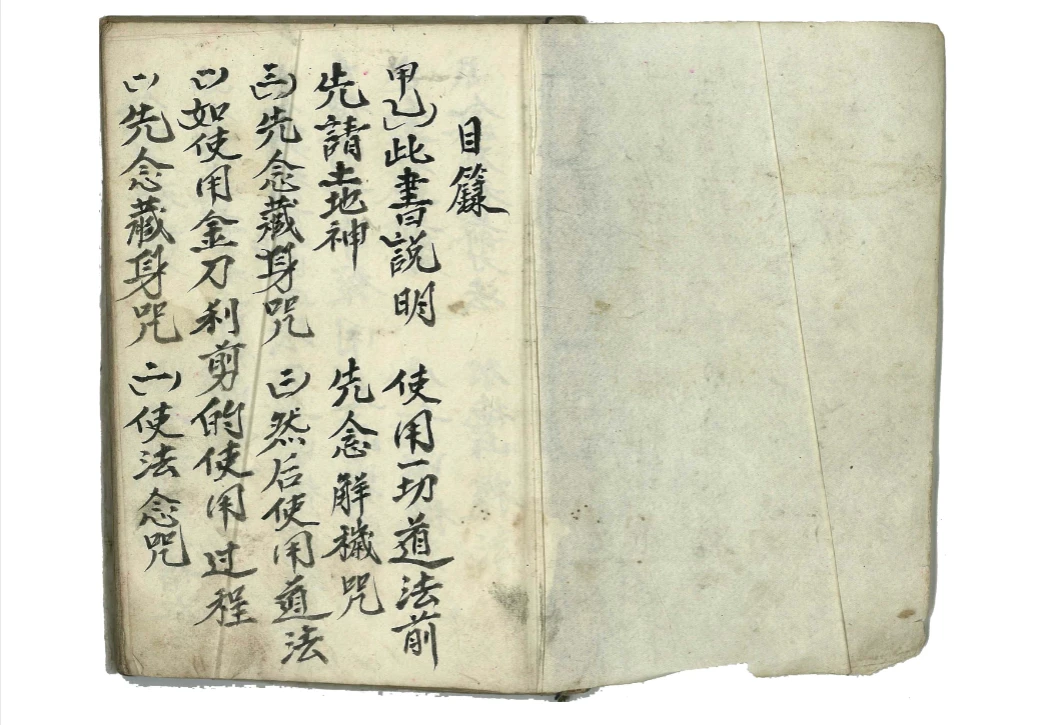 目籙
甲乙)此書説明 使用一切道法前
先請土地神 先念解穢咒
(三)先念藏身咒 (三)然后使用道法
(二)如使用金刀刹剪的使用过程
(一)先念藏身咒 (二)使法念咒